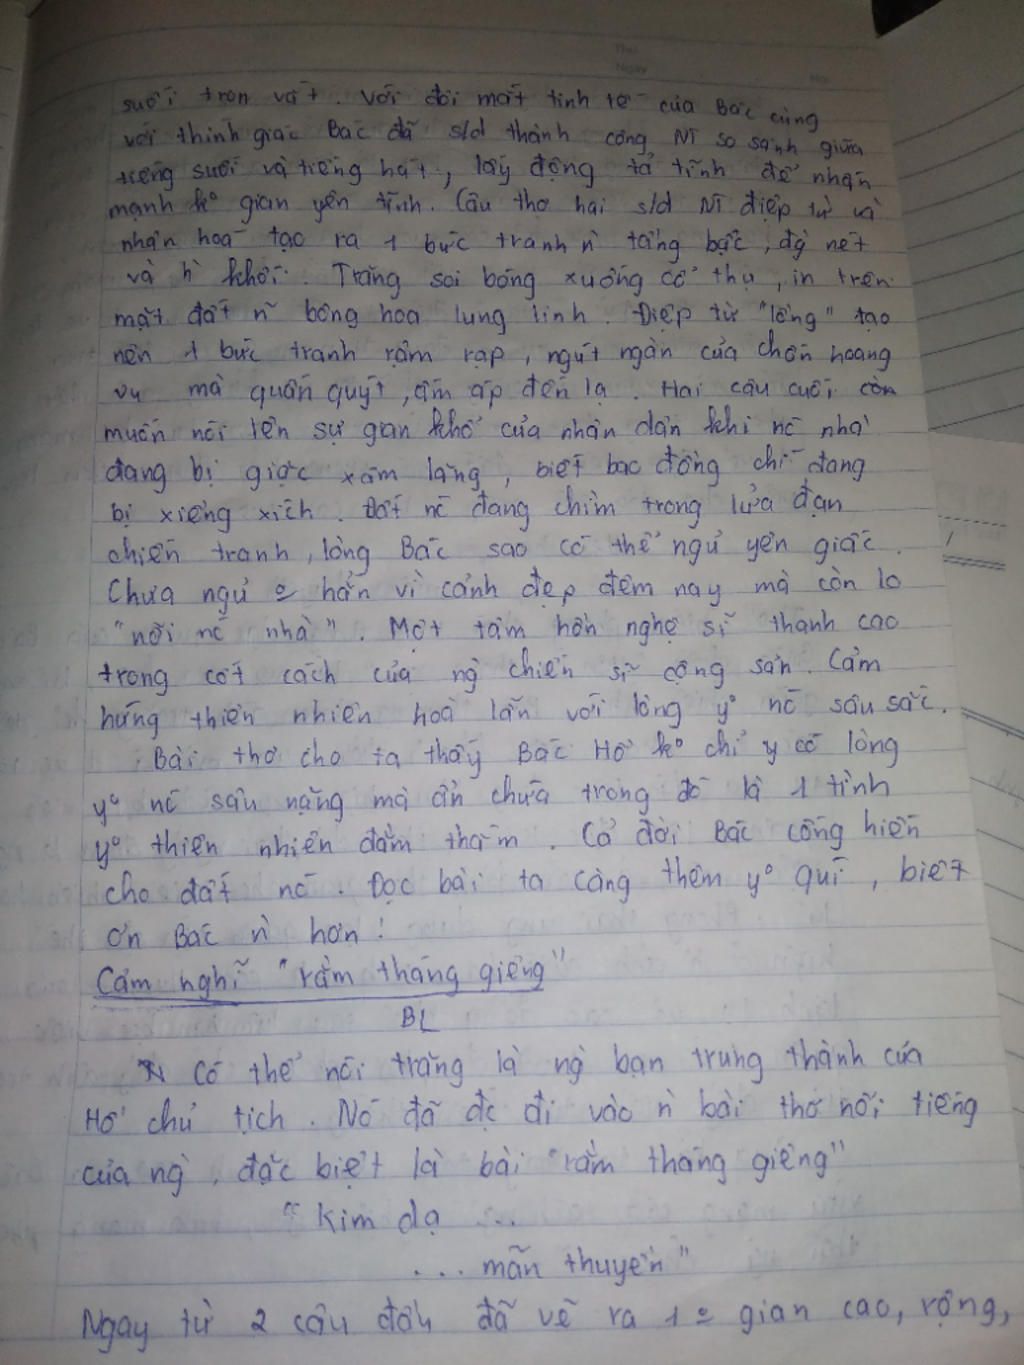 suối tron vắt. Với đôi mắt tinh tế của Bác cùng
với thính giác Bác đã s/d thành công NT so sánh giữa
tiếng suối và tiếng hát, lấy động tả tĩnh để nhấn
mạnh kº gian yên tĩnh. Câu thơ hai s/d NT điệp từ và
nhân hoá tạo ra 1 bức tranh n` tầng bậc, đg` nét
và h` khối. Trăng soi bóng xuống cổ thụ, in trên
mặt đất n~ bông hoa lung linh. Điệp từ "lồng" tạo
nên 1 bức tranh rậm rạp, ngút ngàn của chốn hoang
vu mà quấn quýt, ấm áp đến lạ. Hai câu cuối còn
muốn nói lên sự gian khổ của nhân dân khi nc nhà
đang bị giặc xâm lăng, biết bao đồng chí đang
bị xiềng xích. Đất nc đang chìm trong lửa đạn
chiến tranh, lòng Bác sao có thể ngủ yên giấc.
Chưa ngủ º hẳn vì cảnh đẹp đêm nay mà còn lo
"nỗi nc nhà". Một tâm hồn nghệ sĩ thanh cao
trong cốt cách của ng` chiến sĩ cộng sản. Cảm
hứng thiên nhiên hoà lẫn với lòng yº nc sâu sắc.
Bài thơ cho ta thấy Bác Hồ kº chỉ có lòng
yº nc sâu nặng mà ẩn chứa trong đó là 1 tình
yº thiên nhiên đằm thắm. Cả đời Bác cống hiến
cho đất nc. Đọc bài ta càng thêm yº quí, biết
ơn Bác n` hơn!
Cảm nghĩ "rằm tháng giêng"
BL
Có thể nói trăng là ng` bạn trung thành của
Hồ chủ tịch. Nó đã đc đi vào n` bài thơ nổi tiếng
của ng`, đặc biệt là bài "rằm tháng giêng"
"Kim dạ ...
... mãn thuyền"
Ngay từ 2 câu đầu đã vẽ ra 1 º gian cao, rộng,